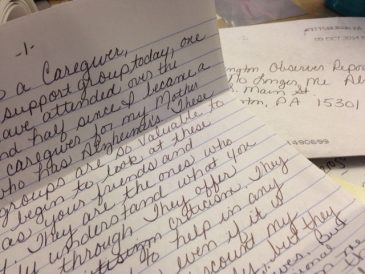 -1-
s a Caregiver,
support group today, one
have attended over the
nd half since I became a
caregiver for my Mother
who has Alzheimer's. These
groups are so valuable to
begin to look at these
as your friends and
. They are the ones who
ly understand what you
through. They offer
criticism. They
to help in any
even if it is
discount my
but they
PITTSBURGH PA
05 OCT 2014
ngton Observer Repor
No Longer Me
S. Main St.
ton, PA 15301
1490699